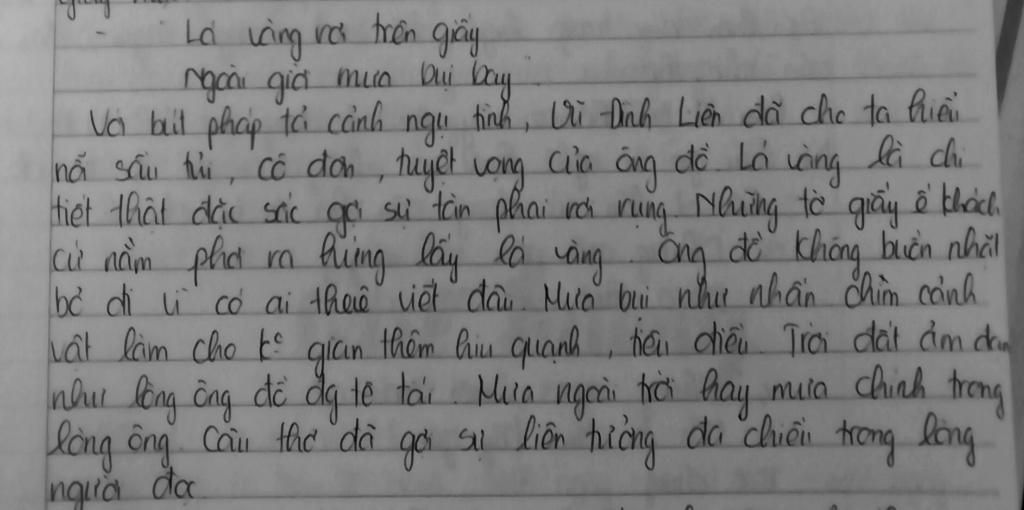 - Lá vàng rơi trên giấy
Ngoài giời mưa bụi bay.
Với bút pháp tả cảnh ngụ tình, Vũ Đình Liên đã cho ta hiểu
nỗi sầu tủi, cô đơn, tuyệt vọng của ông đồ. Lá vàng là chi
tiết thật đặc sắc gợi sự tàn phai rơi rụng. Những tờ giấy ế khách
cứ nằm phơi ra hứng lấy lá vàng. Ông đồ không buồn nhặt
bỏ đi vì có ai thuê viết đâu. Mưa bụi như nhấn chìm cảnh
vật làm cho k° gian thêm hiu quạnh, tiêu điều. Trời đất ảm đạm
như lòng ông đồ đg tê tái. Mưa ngoài trời hay mưa chính trong
lòng ông. Câu thơ đã gợi sự liên tưởng đa chiều trong lòng
người đọc